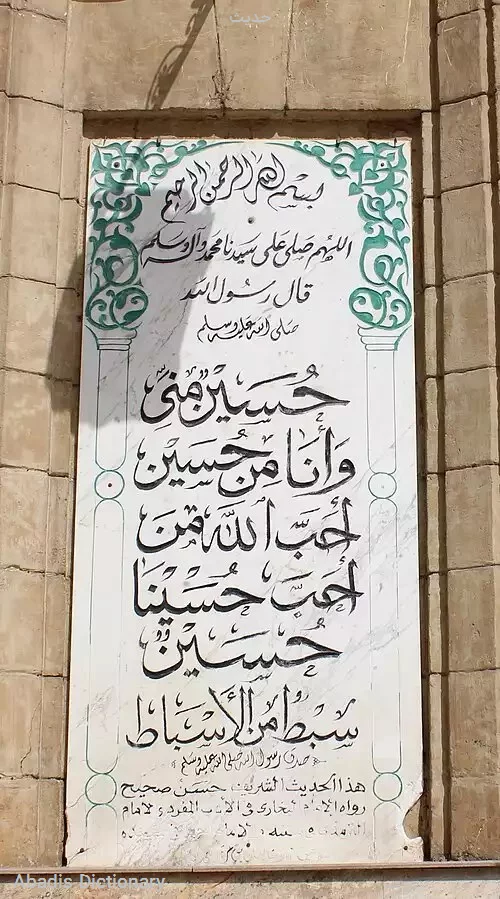 حديث
بسم الله الرحمن الرحيم
اللهم صلى على سيدنا محمد وآله وسلم
قال رسول الله
صلى الله عليه وسلم
حُسَيْنٌ مِنّي
وَأَنَا مِن حُسَين
أَحَبَّ اللَّهَ مَن
أَحَبَّ حُسَيْنَا
حُسَيْنٌ
سبط من الأسباط
صدق رسول الله صلى الله عليه وسلم
هذا الحديث الشريف حسن صحيح
رواه الإمام البخاري في الأدب المفرد والإمام
Abadis Dictionary